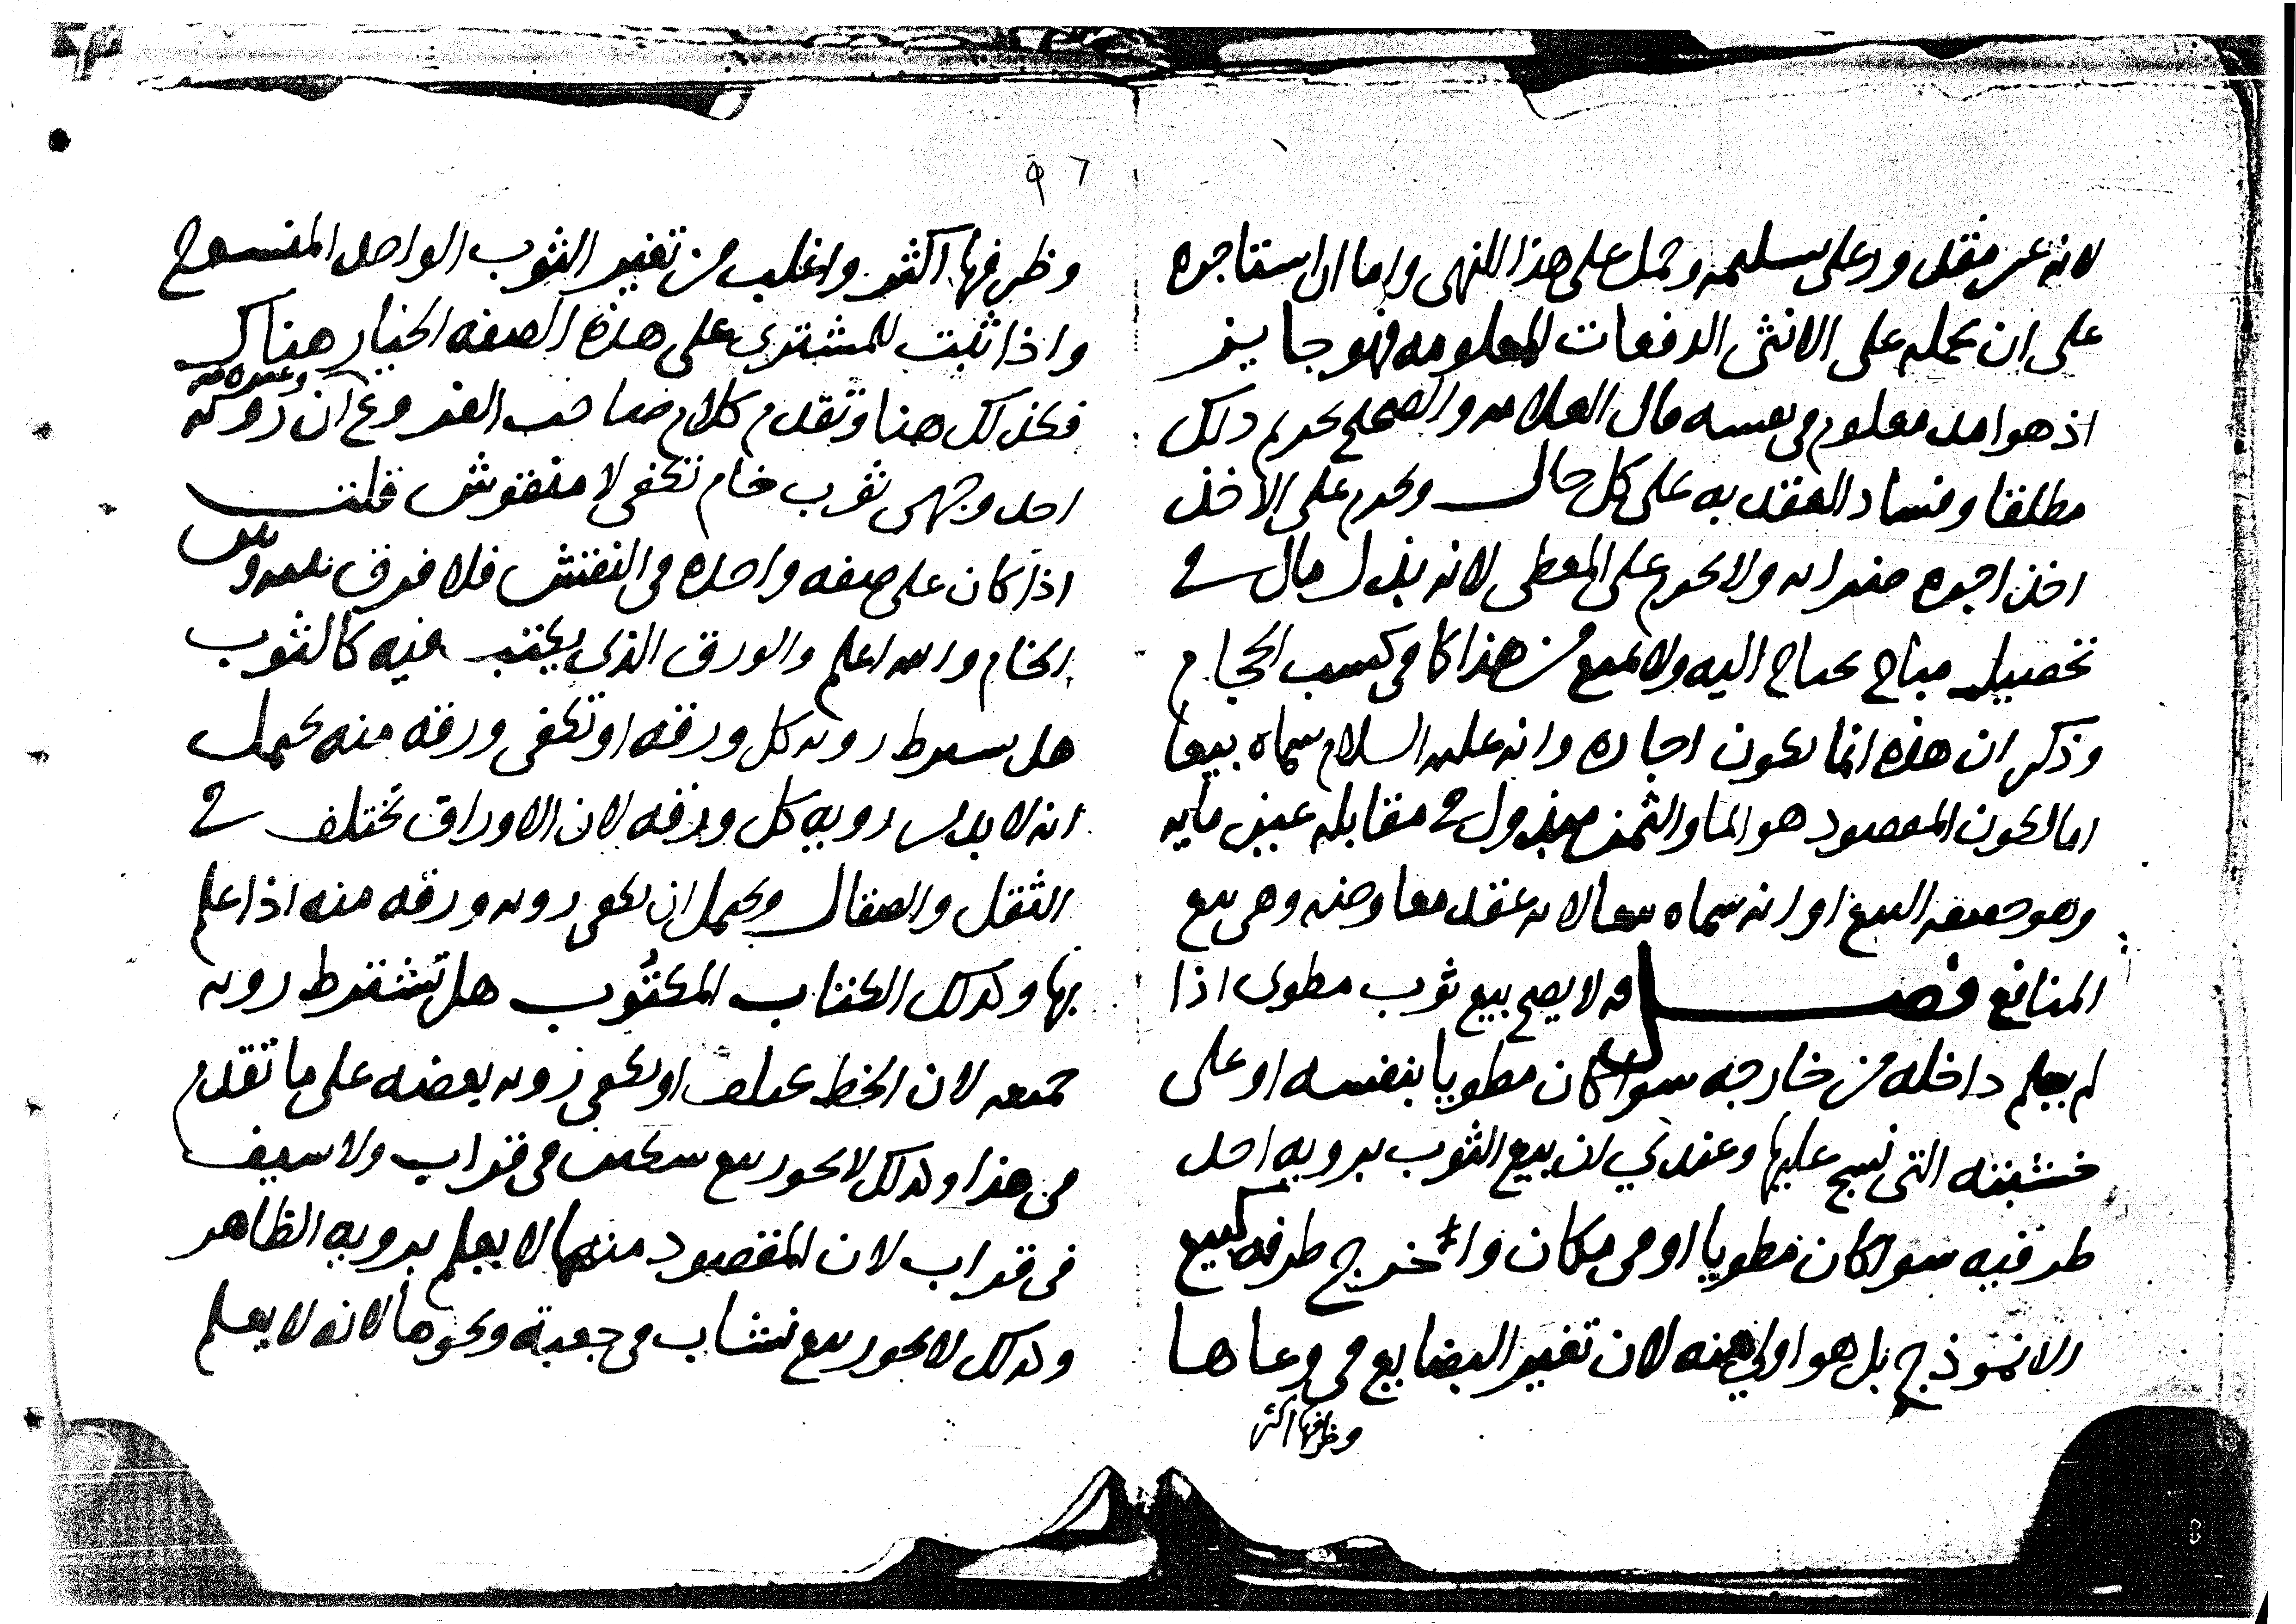 لانه غير مقدور على تسليمه وحمل على هذا النهى واما ان استاجره
على ان يحمله على الانثى الدفعات المعلومه فهو جايز
اذ هو امد معلوم فى نفسه قال العلامه والصحيح تحريم ذلك
مطلقا وفساد العقد به على كل حال ويحرم على الاخذ
اخذ اجره ضرابه ولا يحرم على المعطى لانه بذل مال فى
تحصيل مباح يحتاج اليه ولا يمنع من هذا كما فى كسب الحجام
وذكر ان هذه انما يكون اجاره وانه عليه السلام سماه بيعا
اما لكون المقصود هو الما والثمن مبذول فى مقابله عين مايه
وهو حقيقه البيع او انه سماه بيعا لانه عقد معاوضه وهى بيع
المنافع فصل قد لا يصح بيع ثوب مطوى اذا
لم يعلم داخله من خارجه سوا كان مطويا بنفسه او على
خشبته التى نسج عليها وعندي ان بيع الثوب برويه احد
طرفيه سوا كان مطويا او فى مكان واخرج طرفه كبيع
الانموذج بل هو اولى منه لان تغير البضايع فى وعاها
وظرفها اكثر
٩٦
وظرفها اكثر واغلب من تغير الثوب الواحد المنسوج
واذا ثبت للمشترى على هذه الصفه الخيار هناك
فكذلك هنا وتقدم كلام صاحب الفروع ان رويه
احد وجهى ثوب خام تكفى لا منقوش قلت
اذا كان على صفه واحده فى النقش فلا فرق بينه وبين
الخام والله اعلم والورق الذى يكتب فيه كالثوب
هل يشترط رويه كل ورقه او تكفى ورقه منه يحتمل
انه لا بد من رويه كل ورقه لان الاوراق تختلف فى
الثقل والصقال ويحتمل ان يكفى رويه ورقه منه اذا علم
بها وكذلك الكتاب المكتوب هل تشترط رويه
جميعه لان الخط يختلف او يكفى رويه بعضه على ما تقدم
من هذا وكذلك لا يجوز بيع سكين فى قراب ولا سيف
فى قراب لان المقصود منهما لا يعلم برويه الظاهر
وكذلك لا يجوز بيع نشاب فى جعبة ونحوها لانه لا يعلم